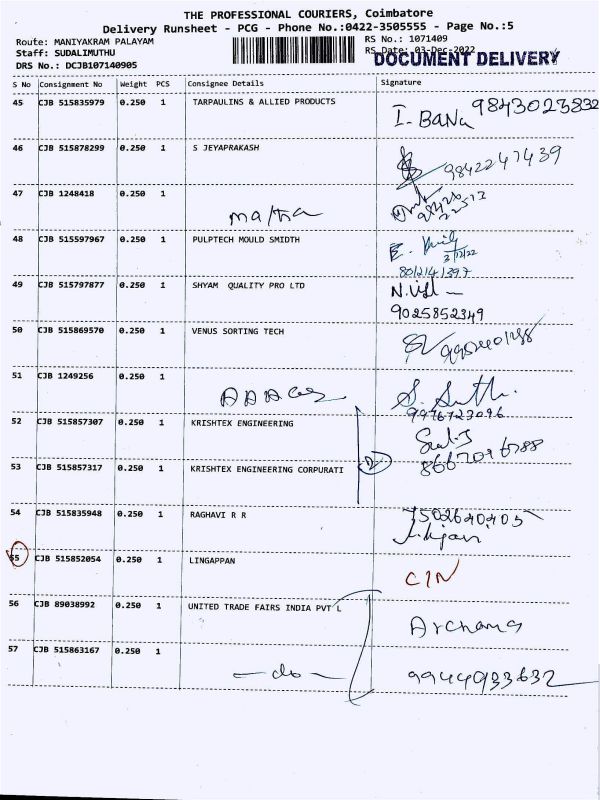 THE PROFESSIONAL COURIERS, Coimbatore
Delivery Runsheet - PCG - Phone No.:0422-3505555 - Page No.:5
Route: MANIYAKRAM PALAYAM RS No.: 1071409
Staff: SUDALIMUTHU RS Date: 03-Dec-2022
DOCUMENT DELIVERY
DRS No.: DCJB107140905
S No Consignment No Weight PCS Consignee Details Signature
45 CJB 515835979 0.250 1 TARPAULINS & ALLIED PRODUCTS I. BaNu 9843023832
46 CJB 515878299 0.250 1 S JEYAPRAKASH 9842247439
47 CJB 1248418 0.250 1
48 CJB 515597967 0.250 1 PULPTECH MOULD SMIDTH
3/12/22
49 CJB 515797877 0.250 1 SHYAM QUALITY PRO LTD
9025852349
50 CJB 515869570 0.250 1 VENUS SORTING TECH
51 CJB 1249256 0.250 1
9976723096
52 CJB 515857307 0.250 1 KRISHTEX ENGINEERING
53 CJB 515857317 0.250 1 KRISHTEX ENGINEERING CORPURATI
54 CJB 515835948 0.250 1 RAGHAVI R R
55 CJB 515852054 0.250 1 LINGAPPAN CIN
56 CJB 89038992 0.250 1 UNITED TRADE FAIRS INDIA PVT L Archana
57 CJB 515863167 0.250 1 -do- 9944933632